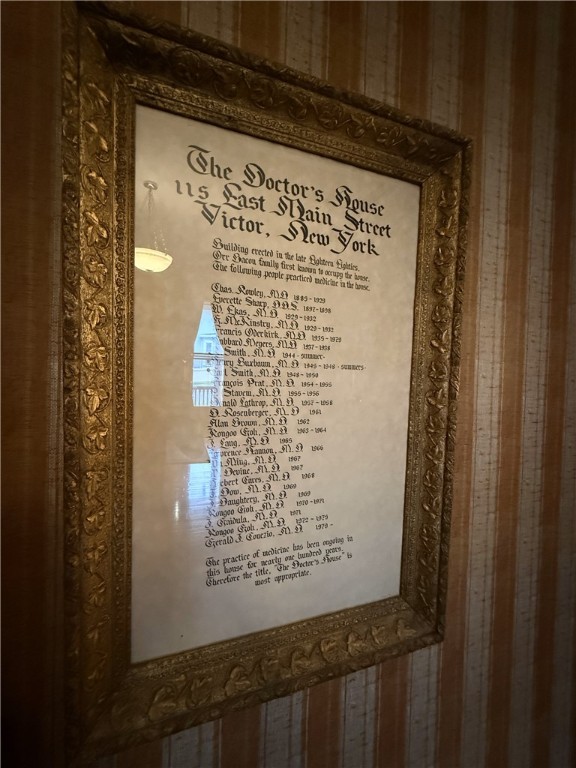 The Doctor's House
115 East Main Street
Victor, New York
Building erected in the late Eighteen Eighties.
Orr Bacon family first known to occupy the house.
The following people practiced medicine in the house.
Chas. Rowley, M.D. 1889-1929
Everette Sharp, D.D.S. 1897-1898
W. Ekas, M.D 1929-1932
McKinstry, M.D 1929-1932
Francis Oderkirk, M.D 1935-1979
Hubbard Meyers, M.D 1937-1938
Smith, M.D 1944-summer-
Henry Buxbaum, M.D 1945-1946-summers-
Smith, M.D 1948-1950
François Prat, M.D 1954-1955
Stavem, M.D 1955-1956
Donald Lathrop, M.D 1957-1958
D. Rosenberger, M.D 1961
Alan Brown, M.D 1962
Rongoo Goh, M.D 1963-1964
Lang, M.D 1965
Hannon, M.D 1966
Ming, M.D 1967
Devine, M.D 1967
Cares, M.D 1968
Dow, M.D 1969
Daughtery, M.D 1969
Rongoo Goh, M.D 1970-1971
Gaidula, M.D 1971
Rongoo Goh, M.D 1972-1979
Gerald J. Covezio, M.D 1979-
The practice of medicine has been ongoing in
this house for nearly one hundred years,
therefore the title, "The Doctor's House" is
most appropriate.